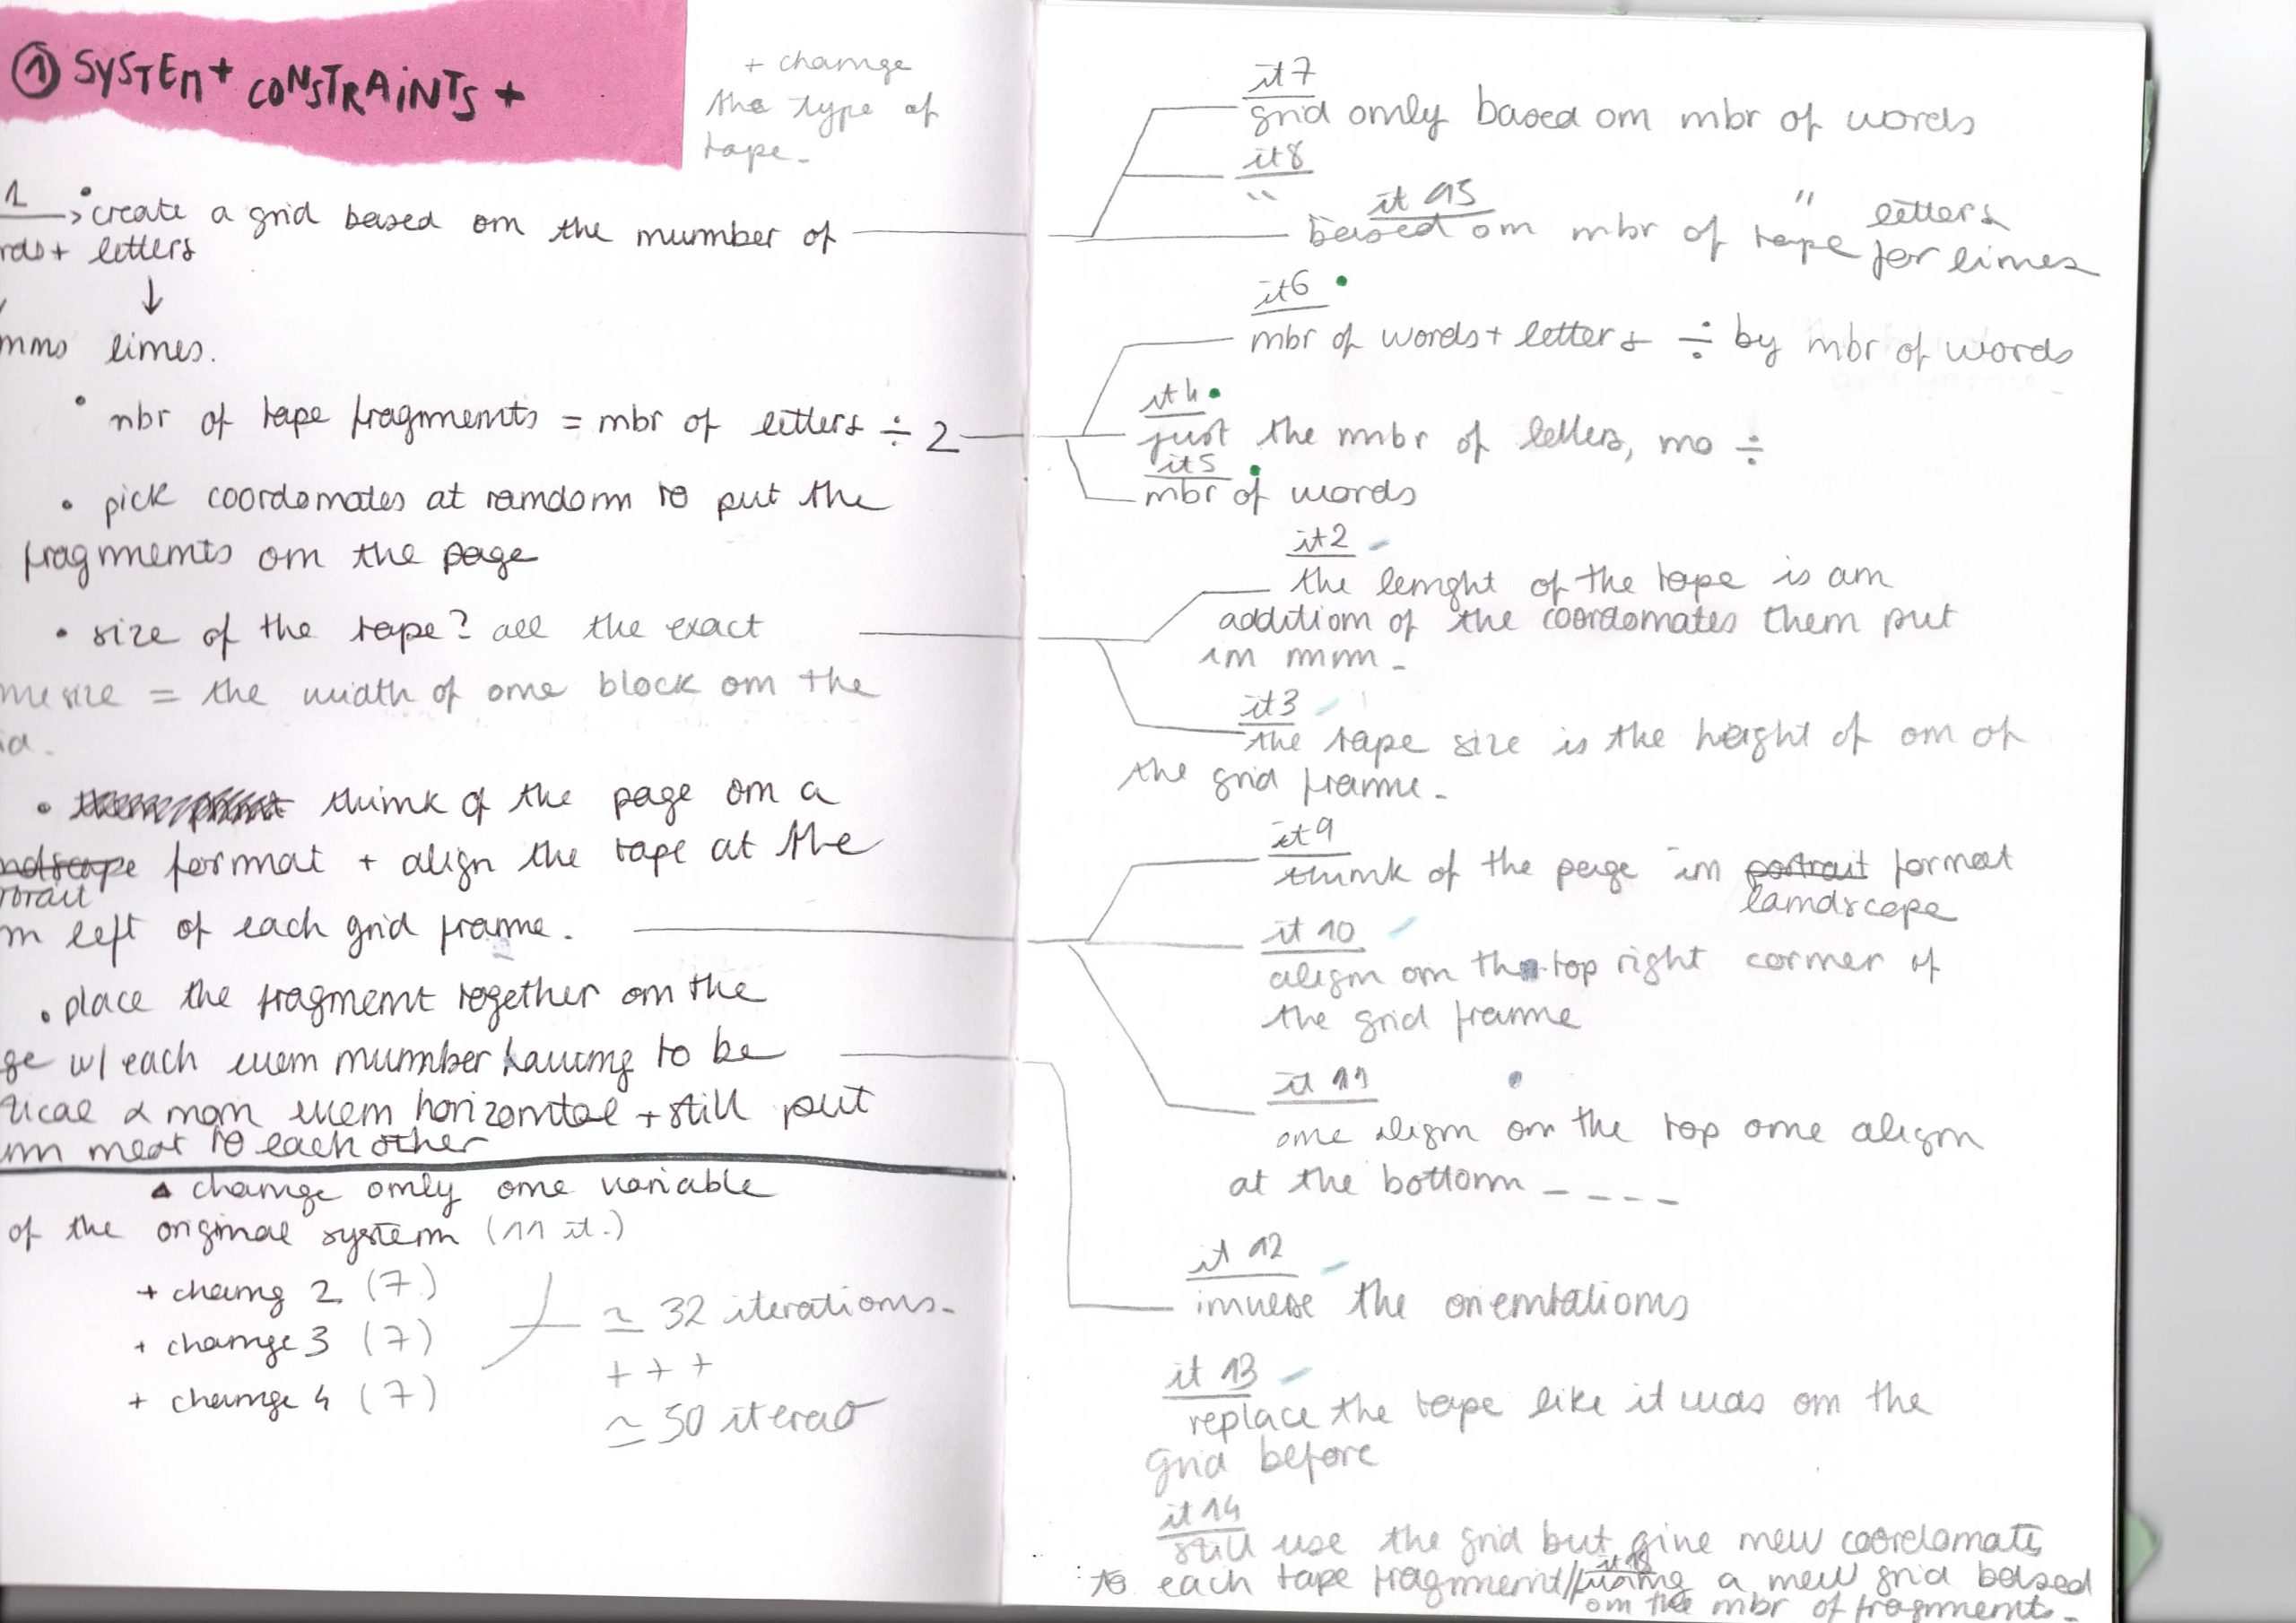 ① SYSTEM + CONSTRAINTS +
+ change
the type of
tape.
1 → • create a grid based on the number of
rds + letters
↓
mns lines.
• nbr of tape fragments = nbr of letters ÷ 2
• pick coordonates at random to put the
fragments on the page
• size of the tape? all the exact
me size = the width of one block on the
id.
• think of the page on a
ndscape format + align the tape at the
rtrait
m left of each grid frame.
• place the fragment together on the
ge w/ each even number having to be
tical & non even horizontal + still put
next to each other
▲ change only one variable
of the original system (11 it.)
+ chang 2 (7)
+ change 3 (7)
+ change 4 (7)
≃ 32 iterations.
+ + +
≃ 50 iterao
it 7
grid only based on nbr of words
it 8
" " letters
it 15
based on nbr of tape for lines
it 6
nbr of words + letters ÷ by nbr of words
it 4
just the nbr of letters, no ÷
it 5
nbr of words
it 2
the lenght of the tape is an
addition of the coordonates then put
in mm.
it 3
the tape size is the height of on of
the grid frame.
it 9
think of the page in portrait format
landscape
it 10
align on the top right corner of
the grid frame
it 11
one align on the top one align
at the bottom - - - -
it 12
inverse the orientations
it 13
replace the tape like it was on the
grid before
it 14
still use the grid but give new coordonates
to each tape fragment // a new grid based
on the nbr of fragments.